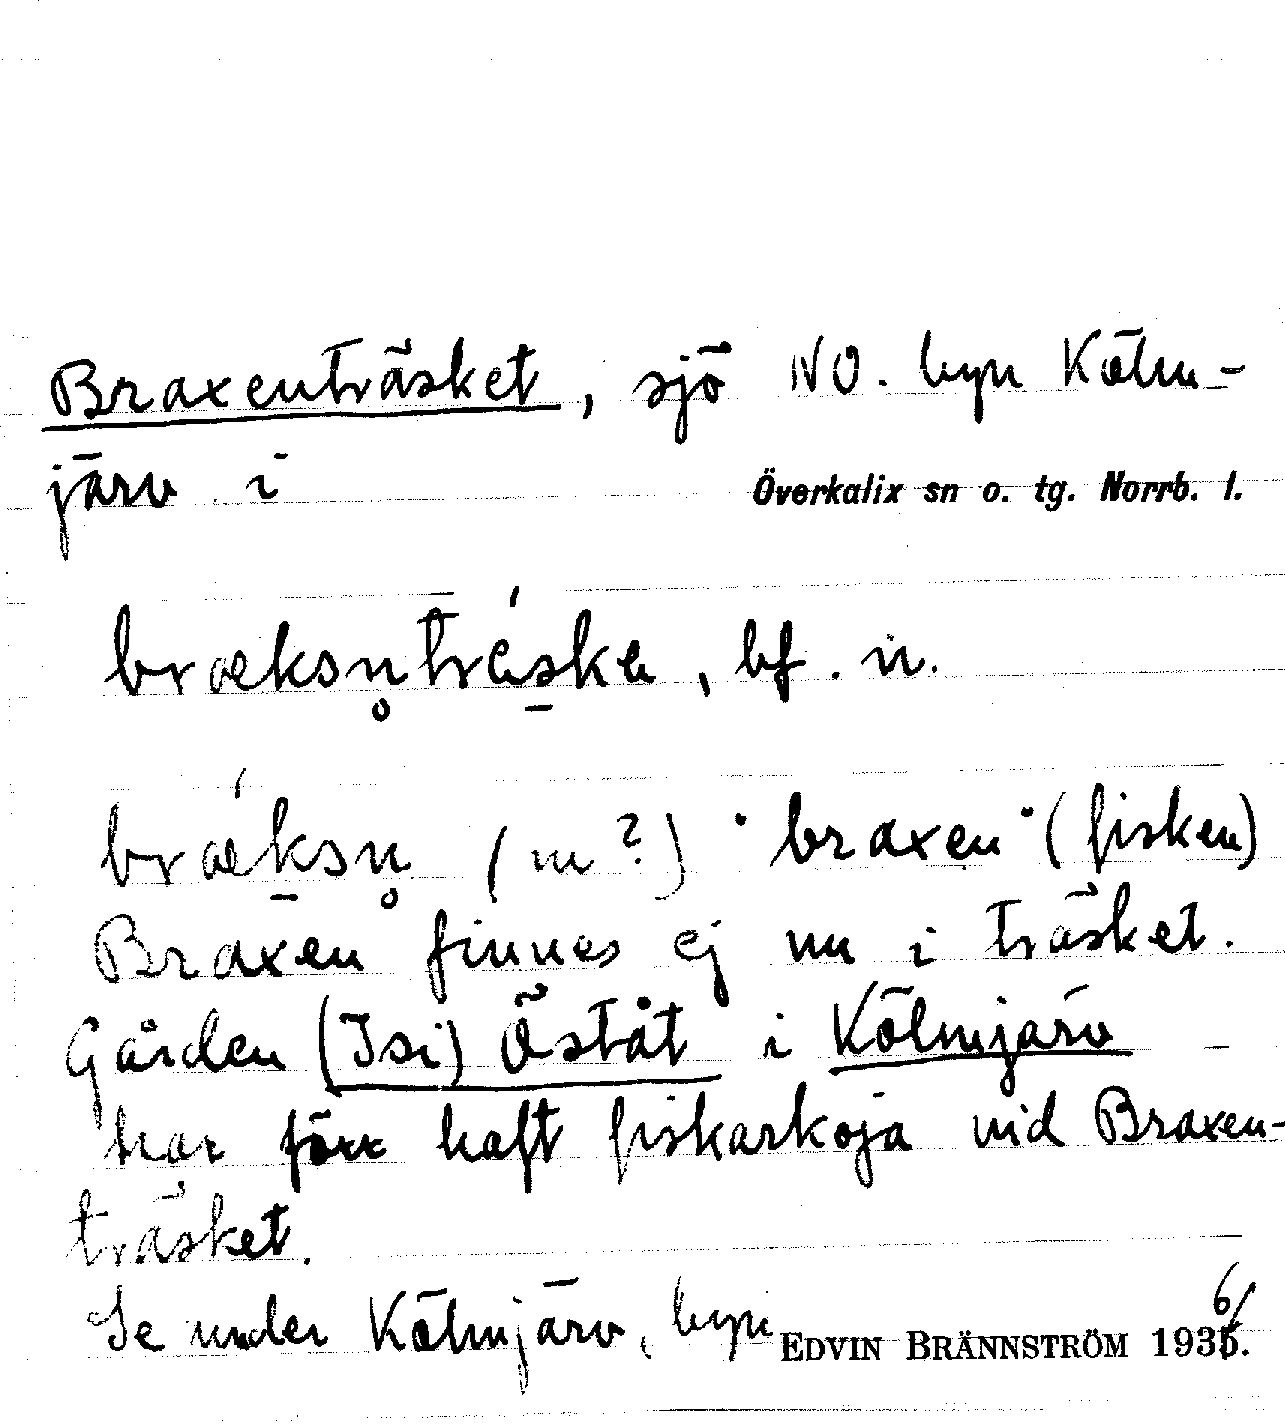 Braxenträsket, sjö NO. byn Kölm-
järv i Överkalix sn o. tg. Norrb. l.
bræksn̥tráska, bf. n.
brǽksn̥ (m?) "braxen" (fisken)
Braxen finnes ej nu i träsket.
Gården (Isi) Öståt i Kölmjärv
har förr haft fiskarkoja vid Braxen-
träsket.
Se under Kölmjärv, byn EDVIN BRÄNNSTRÖM 1936.